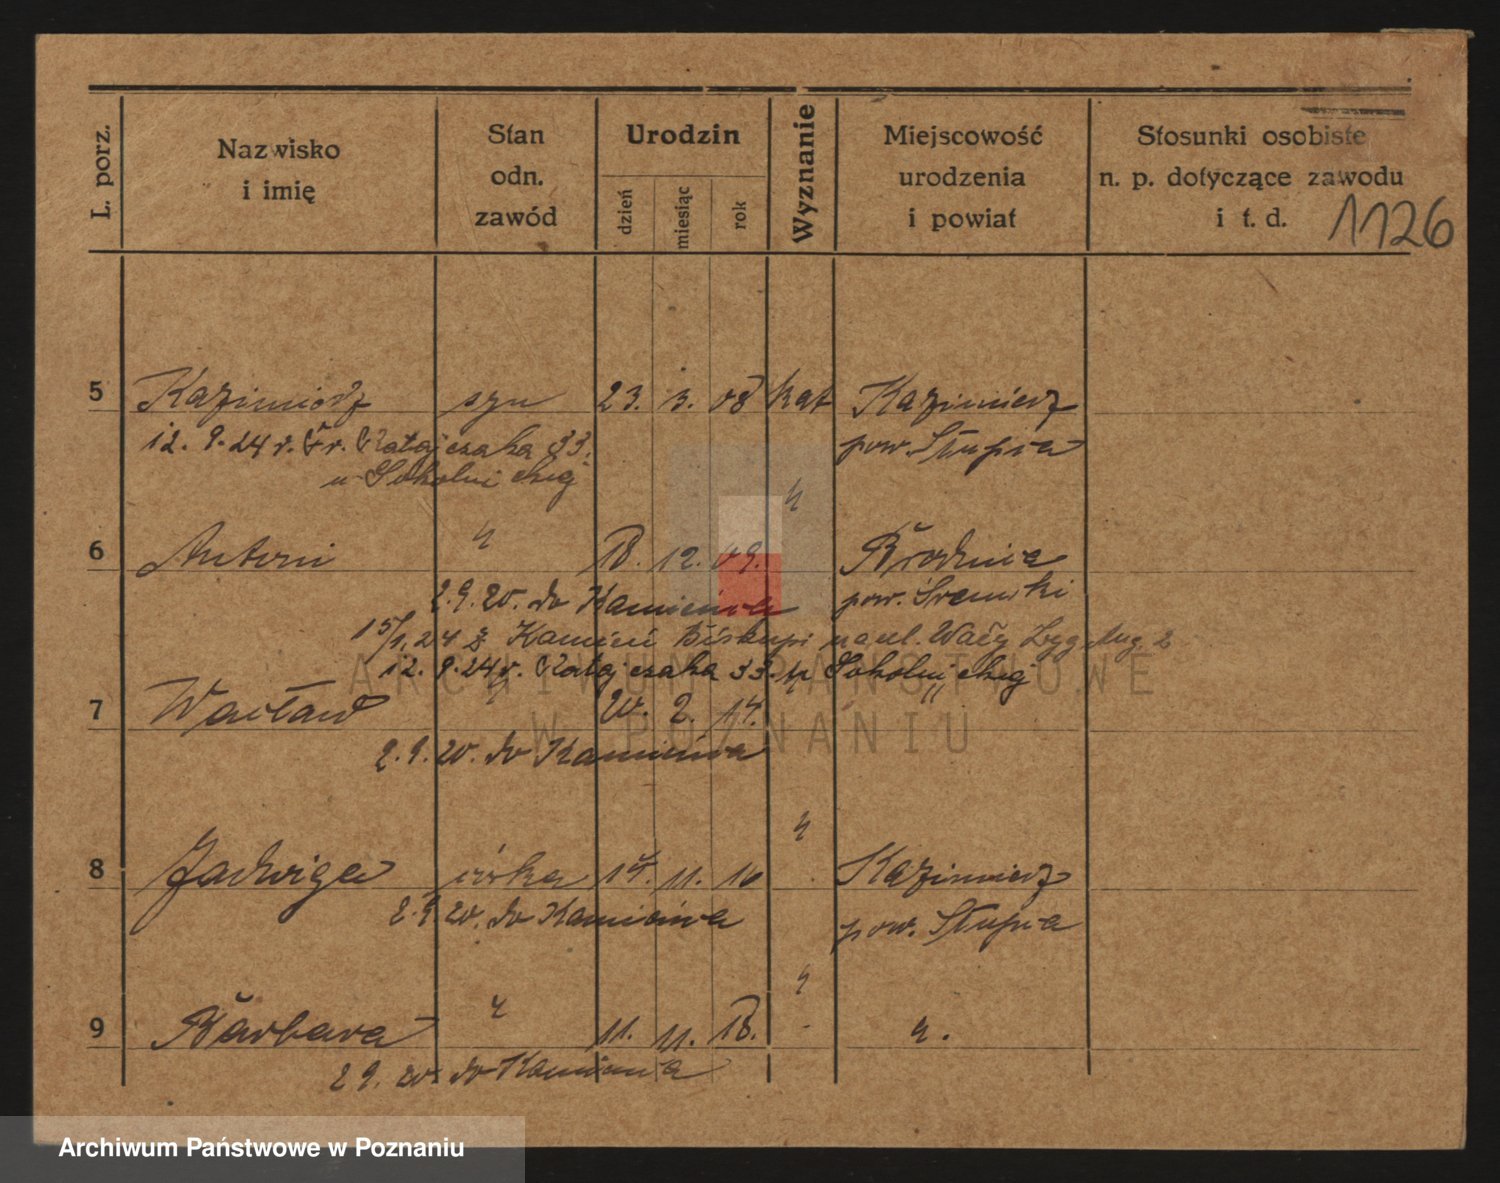 L. porz.
Nazwisko
i imię
Stan
odn.
zawód
Urodzin
dzień
miesiąc
rok
Wyznanie
Miejscowość
urodzenia
i powiat
Stosunki osobiste
n. p. dotyczące zawodu
i t. d.
1126
5 Kazimierz syn 23. 3. 08 kat Kazimierz
12. 9. 24 r. Fr. Ratajczaka 33. pow. Słupia
u Sokolnickiej
6 Antoni " 18. 12. 09. " Brodnica
2.9.20. do Kamieńca pow. Śremski
15/1.24 z Kamień Biskupi Wały Zyg. Aug. 2
12. 9. 24 r. Ratajczaka 33. u Sokolnickiej
7 Wacław " 20. 2. 14. "
2.9.20. do Kamieńca
8 Jadwiga córka 14. 11. 16 " Kazimierz
2.9.20. do Kamieńca pow. Słupia
9 Barbara " 11. 11. 18. " ".
2.9.20. do Kamieńca
ARCHIWUM PAŃSTWOWE
W POZNANIU
Archiwum Państwowe w Poznaniu